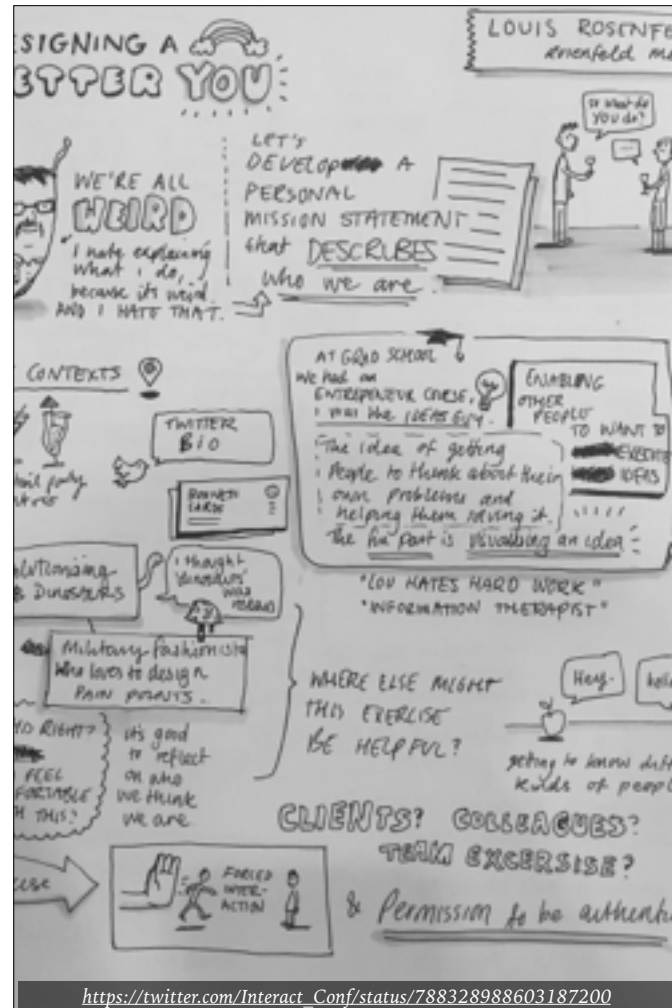 SIGNING A
ETTER YOU
LOUIS ROSENFE
rosenfeld me
So what do
YOU do?
...
WE'RE ALL
WEIRD
"I hate explaining
what I do,
because its weird.
AND I HATE THAT.
LET'S
DEVELOP A
PERSONAL
MISSION STATEMENT
that DESCRIBES
who we are.
CONTEXTS
TWITTER
BIO
BUSINESS
CARDS
tail party
AT GRAD SCHOOL
We had an
ENTREPENEUR COURSE,
I was the IDEAS GUY.
The idea of getting
People to think about their
own problems and
helping them solving it.
The fun part is visualising an idea
ENABLING
OTHER
PEOPLE
TO WANT TO
EXECUTE
IDEAS
"LOU HATES HARD WORK"
"INFORMATION THERAPIST"
olutionising
& DINOSAURS
I thought
'dinosaurs'
was
Military fashionista
Who loves to design
PAIN POINTS.
RIGHT?
FEEL
FORTABLE
THIS?
it's good
to reflect
on who
we think
we are
WHERE ELSE MIGHT
THIS EXERCISE
BE HELPFUL?
Hey.
hello
getting to know diff
kinds of peopl
CLIENTS? COLLEAGUES?
TEAM EXCERSISE?
FORCED
INTER-
ACTION
& Permission to be authenti
https://twitter.com/Interact_Conf/status/788328988603187200